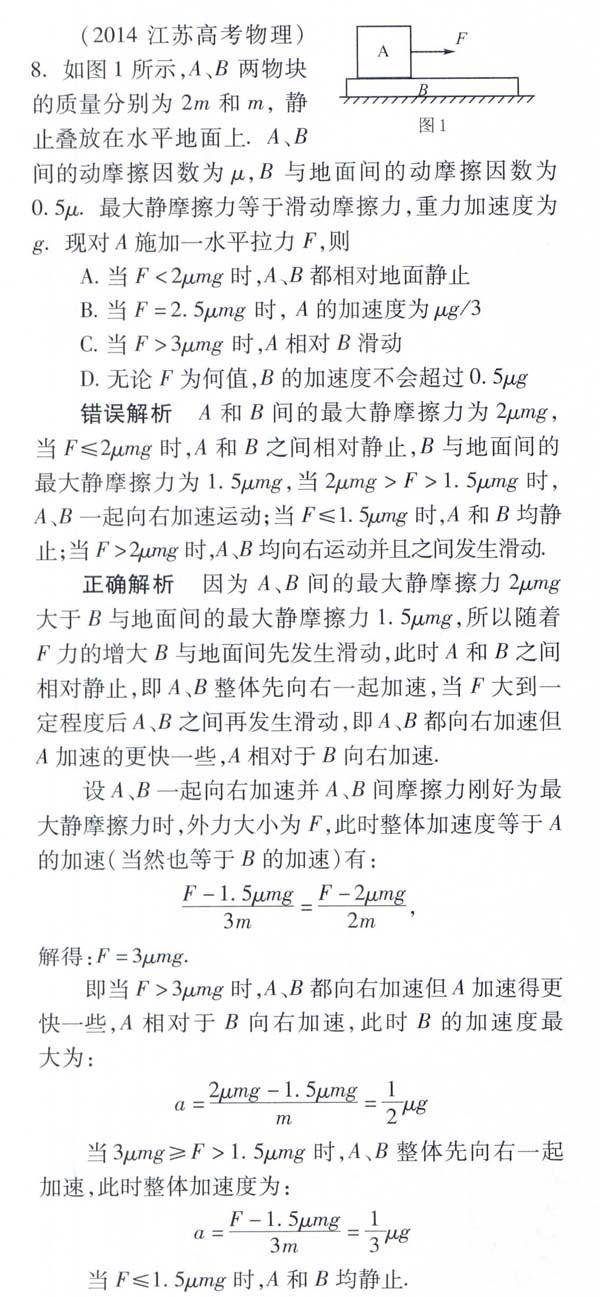 (2014 江苏高考物理)
8. 如图1所示,A、B 两物块
的质量分别为 2m 和 m, 静
止叠放在水平地面上. A、B
A
F
B
图1
间的动摩擦因数为 μ,B 与地面间的动摩擦因数为
0.5μ. 最大静摩擦力等于滑动摩擦力,重力加速度为
g. 现对 A 施加一水平拉力 F,则
A. 当 F<2μmg 时,A、B 都相对地面静止
B. 当 F=2.5μmg 时, A 的加速度为 μg/3
C. 当 F>3μmg 时,A 相对 B 滑动
D. 无论 F 为何值,B 的加速度不会超过 0.5μg
错误解析 A 和 B 间的最大静摩擦力为 2μmg,
当 F≤2μmg 时,A 和 B 之间相对静止,B 与地面间的
最大静摩擦力为 1.5μmg,当 2μmg>F>1.5μmg 时,
A、B 一起向右加速运动;当 F≤1.5μmg 时,A 和 B 均静
止;当 F>2μmg 时,A、B 均向右运动并且之间发生滑动.
正确解析 因为 A、B 间的最大静摩擦力 2μmg
大于 B 与地面间的最大静摩擦力 1.5μmg,所以随着
F 力的增大 B 与地面间先发生滑动,此时 A 和 B 之间
相对静止,即 A、B 整体先向右一起加速,当 F 大到一
定程度后 A、B 之间再发生滑动,即 A、B 都向右加速但
A 加速的更快一些,A 相对于 B 向右加速.
设 A、B 一起向右加速并 A、B 间摩擦力刚好为最
大静摩擦力时,外力大小为 F,此时整体加速度等于 A
的加速(当然也等于 B 的加速)有:
(F-1.5μmg)/3m = (F-2μmg)/2m,
解得:F=3μmg.
即当 F>3μmg 时,A、B 都向右加速但 A 加速得更
快一些,A 相对于 B 向右加速,此时 B 的加速度最
大为:
a = (2μmg-1.5μmg)/m = 1/2 μg
当 3μmg≥F>1.5μmg 时,A、B 整体先向右一起
加速,此时整体加速度为:
a = (F-1.5μmg)/3m = 1/3 μg
当 F≤1.5μmg 时,A 和 B 均静止.